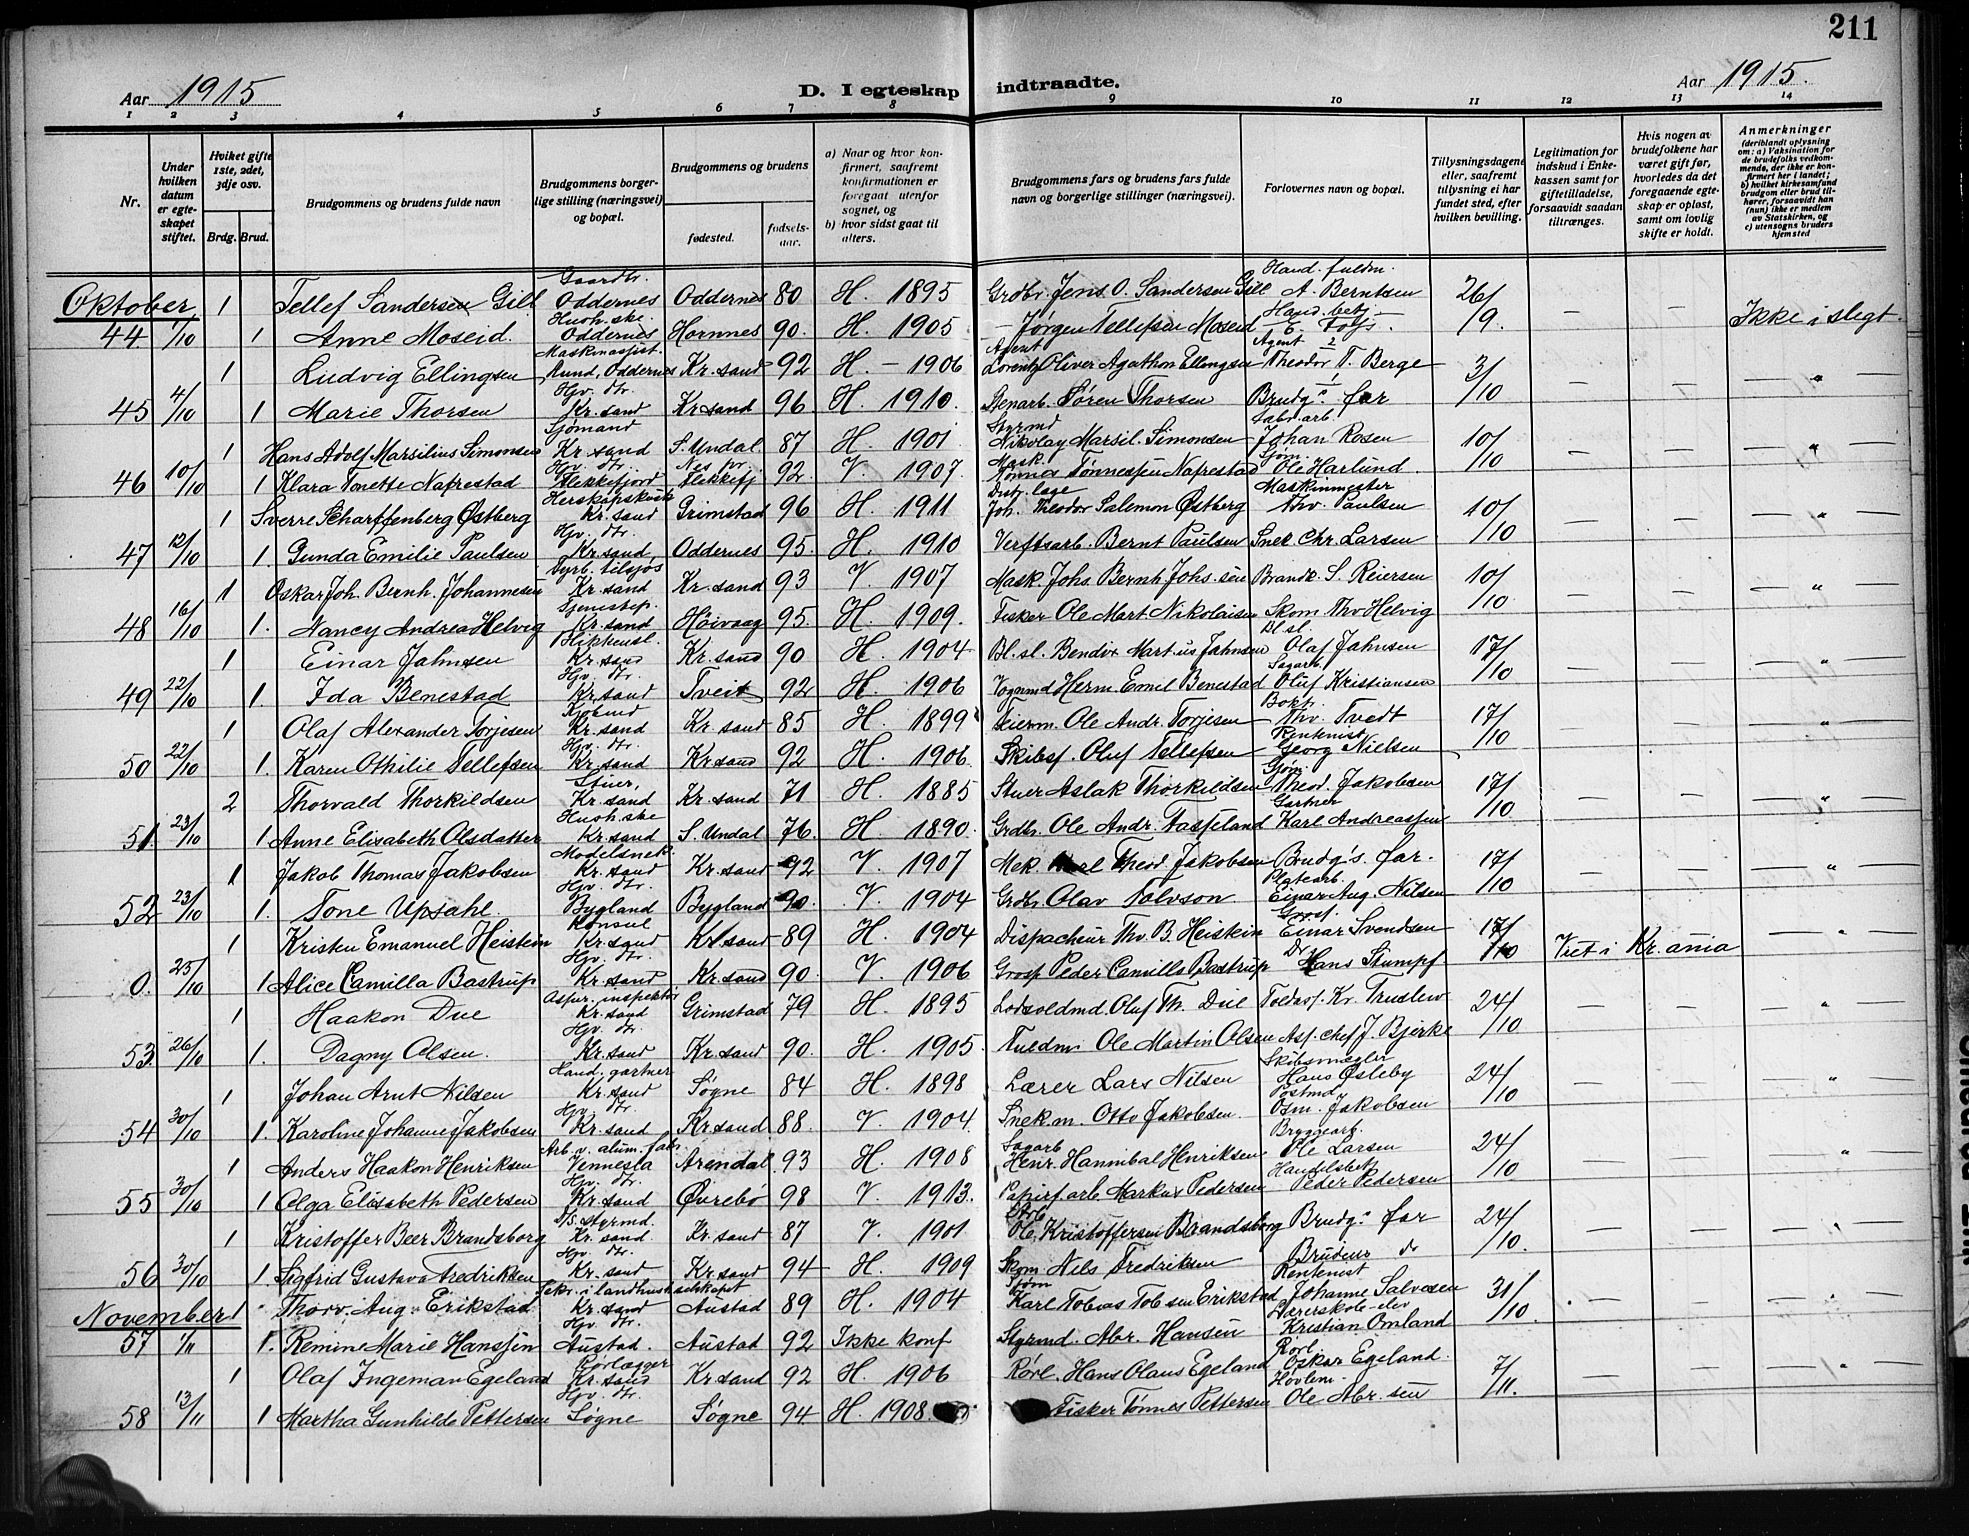 211
Aar 1915 D. I egteskap indtraadte. Aar 1915.
1 2 3 4 5 6 7 8 9 10 11 12 13 14
Nr.
Under hvilken datum er egteskapet stiftet.
Hvilket gifte 1ste, 2det, 3dje osv.
Brdg. Brud.
Brudgommens og brudens fulde navn
Brudgommens borgerlige stilling (næringsvei) og bopæl.
Brudgommens og brudens
fødested.
fødselsaar.
a) Naar og hvor konfirmert, saafremt konfirmationen er foregaat utenfor sognet, og
b) hvor sidst gaat til alters.
Brudgommens fars og brudens fars fulde navn og borgerlige stillinger (næringsvei).
Forlovernes navn og bopæl.
Tillysningsdagene eller, saafremt tillysning ei har fundet sted, efter hvilken bevilling.
Legitimation for indskud i Enkekassen samt for giftetilladelse, forsaavidt saadan tiltrænges.
Hvis nogen av brudefolkene har været gift før, hvorledes da det foregaaende egteskap er opløst, samt om lovlig skifte er holdt.
Anmerkninger (deriblandt oplysning om: a) Vaksination for de brudefolks vedkommende, der ikke er konfirmert her i landet; b) hvilket kirkesamfund brudgom eller brud tilhører, forsaavidt han (hun) ikke er medlem av Statskirken, og c) utensogns bruders hjemsted
Oktober 1 Tellef Sandersen Gill Gaardbr. Oddernes Oddernes 80 H. 1895 Grdbr. Jens O. Sandersen Gill Hand. fuldm. A. Berntsen 26/9. — —
44 1/10 1 Anne Moseid. Hush.ske. Oddernes Hornnes 90. H. 1905 — Jørgen Tellefsen Moseid Hand. betj. Ikke i slegt.
1 Ludvig Ellingsen Maskinassist. Lund, Oddernes Kr.sand 92 H. — 1906 Agent Lorentz Oliver Agathon Ellingsen Agent Theodor T. Berge 3/10 — — "
45 4/10 1 Marie Thorsen Hjv. dtr. Kr.sand Kr.sand 96 H. 1910. Stenarb. Søren Thorsen Brudg.s far
1 Hans Adolf Marsilius Simonsen Sjømand Kr.sand S. Undal. 87 H. 1901 Styrmd Nikolay Marsil. Simonsen Fabr.arb. Johan Rosen 10/10 — — "
46 10/10 1 Klara Tonette Nafrestad Hjv. dtr. Flekkefjord Nes pr. Flekkefj 92 V. 1907. Mask. Tønnes Tønnessen Nafrestad Sjøm. Ole Harlund.
1 Sverre Scharffenberg Østberg Herskapskusk Kr.sand Grimstad 96 H. 1911 Distr. læge Joh. Theodor Salemon Østberg Maskinmester Thv. Paulsen 10/10 — — "
47 12/10 1. Gunda Emilie Paulsen Hjv. dtr. Kr.sand, Oddernes 95. H. 1910 Verftsarb. Bernt Paulsen Snek. Chr. Larsen
1 Oskar Joh. Bernh. Johannesen Fyrb. tilsjøs Kr.sand Kr.sand 93 V. 1907 Mask. Johs. Bernh. Johs.sen Brandk. S. Reiersen 10/10. — — "
48 16/10 1. Nancy Andrea Helvig Tjenestep. Kr.sand Høivaag 95. H. 1909. Fisker Ole Mart. Nikolaisen Skom. Thv Helvig
1 Einar Jahnsen Blikkensl. Kr.sand Kr.sand 90 H. 1904 Bl. sl. Bendix Martius Jahnsen Bl. sl. Olaf Jahnsen 17/10 — — "
49 22/10 1 Ida Benestad Hjv. dtr. Kr.sand Tveit 92 H. 1906 Vognmd Herm. Emil Benestad Sagarb. Oluf Kristiansen
1 Olaf Alexander Torjesen Kjøbmd Kr.sand Kr.sand 85 H. 1899 Feierm. Ole Andr. Torjesen Bokh. Thv. Tvedt 17/10 — — "
50 22/10 1. Karen Othilie Tellefsen Hjv. dtr. Kr.sand Kr.sand 92 H. 1906. Skibsf. Oluf Tellefsen Rentenist Georg Nielsen
2 Thorvald Thorkildsen Stuer, Kr.sand Kr.sand 71 H. 1885 Stuer Aslak Thorkildsen Sjøm. Theod. Jakobsen 17/10 — — "
51. 23/10 1 Anne Elisabeth Olsdatter Hush.ske Kr.sand S. Undal 76. H 1890. Grdbr. Ole Andr. Faasseland Gartner Karl Andreassen
1 Jakob Thomas Jakobsen Modelsnek. Kr.sand Kr.sand 92 V. 1907 Mek. Theod. Jakobsen Brudg's far. 17/10 — — "
52 23/10 1. Tone Upsahl. Hjv. dtr. Bygland Bygland 90. V. 1904 Grdbr. Olav Tolvson Platearb. Einar Aug. Nilsen
1 Kristen Emanuel Heistein Konsul Kr.sand Kr.sand 89 H. 1904 Dispacheur Thv. B. Heistein Gross. Einar Svendsen 17/10 Viet i Kr.ania — "
0. 25/10 1 Alice Camilla Bastrup Hjv. dtr. Kr.sand Kr.sand 90. V. 1906 Gross. Peder Camills Bastrup Dr. Hans Stumpf.
1 Haakon Due Assur. inspektør Kr.sand Grimstad 79 H. 1895 Lodsoldmd. Oluf Th. Due Toldass. Kr. Truslew 24/10 — — "
53. 26/10 1. Dagny Olsen. Hjv. dtr. Kr.sand Kr.sand 90. H. 1905. Fuldm. Ole Martin Olsen Ass. chef J. Bjerke
1 Johan Arnt Nilsen Hand. gartner Kr.sand Søgne 84 H. 1898 Lærer Lars Nilsen Skibsmægler Hans Østeby 24/10 — — "
54 30/10 1. Karoline Johanne Jakobsen Hjv. dtr. Kr.sand Kr.sand 88. V. 1904. Snek.m. Otto Jakobsen. Postmd Osm. Jakobsen
1 Anders Haakon Henriksen Arb. v. alum. fabr. Vennesla Arendal 93 H. 1908 Sagarb Henr. Hannibal Henriksen Bryggearb. Ole Larsen 24/10 — — "
55 30/10 1 Olga Elisabeth Pedersen Hjv. dtr. Kr.sand Øvrebø 98 V. 1913. Papirf.arb. Markus Pedersen Handelsbetj. Peder Pedersen
1 Kristoffer Beer Brandsborg D/S. styrmd. Kr.sand Kr.sand 87 V. 1901 Ole Kristoffersen Brandsborg Brudg.s far 24/10. — — "
56 30/10 1. Sigfrid Gustava Fredriksen Hjv. dtr. Kr.sand Kr.sand 94 H. 1909 Skom. Nils Fredriksen Brudens do
November 1 Thorv. Aug. Erikstad Sekr. i landhush.selskapet Kr.sand Austad 89 H. 1904 Sjøm Karl Tobias Tobsen Erikstad Rentenist Johanne Salvesen 31/10. — — "
57 1/11 1. Remine Marie Hanssen Hjv. dtr. Austad. Austad 92 Ikke konf Styrmd. Abr. Hansen Lærerskole-elev Kristian Omland
1 Olaf Ingeman Egeland Rørlægger Kr.sand Kr.sand 92 H. 1906 Rørl. Hans Olaus Egeland Rørl Oskar Egeland. 7/11. — — "
58 13/11 1 Martha Gunhilde Pettersen Hjv. dtr. Søgne Søgne 94 H. 1908 Fisker Tønnes Pettersen Høvlem. Ole Abr.sen